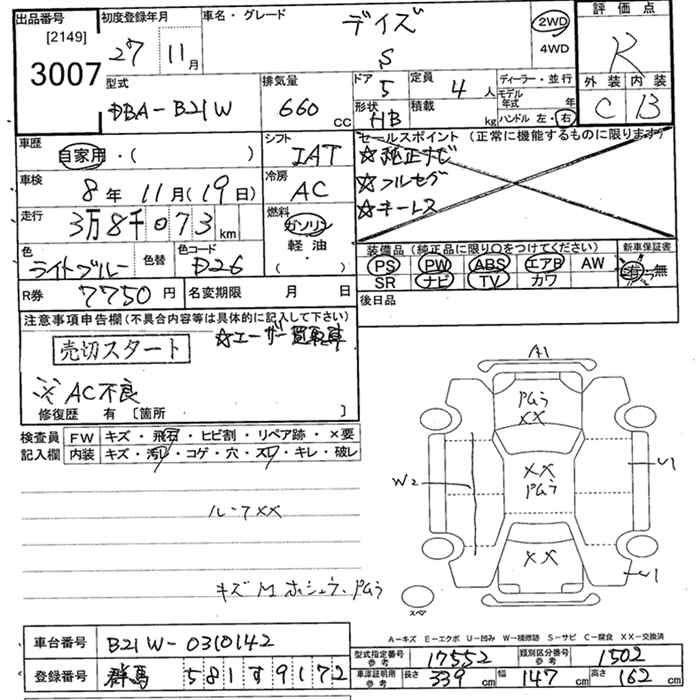 出品番号 [2149] 3007
初度登録年月 27 11月
車名・グレード デイズ S
2WD 4WD
評価点 R
外装 内装
C B
型式 DBA-B21W
排気量 660 CC
ドア 5 定員 4人
形状 HB 積載 kg
ディーラー・並行
モデル年式 年
ハンドル 左・右
車歴 自家用・( )
シフト IAT
セールスポイント(正常に機能するものに限ります)
☆純正ナビ
☆フルセグ
☆キーレス
車検 8年 11月(19日)
冷房 AC
走行 3万8千073km
燃料 ガソリン 軽油 ( )
色 ライトブルー 色替 色コード D26
装備品(純正品に限り○をつけてください) 新車保証書
PS PW ABS エアB AW 有・無
SR ナビ TV カワ
R券 7750円 名変期限 月 日
後日品
注意事項申告欄(不具合内容等は具体的に記入して下さい)
売切スタート ☆ユーザー買取車
※AC不良
修復歴 有〔箇所 〕
検査員 FW キズ・飛石・ヒビ割・リペア跡・×要
記入欄 内装 キズ・汚れ・コゲ・穴・スレ・キレ・破レ
ルーフXX
キズM ホシュウ・PMムラ
A1
PMムラ
XX
U1
W2
XX
PMムラ
XX
U1
スペ
A-キズ E-エクボ U-凹み W-補修跡 S-サビ C-腐食 XX-交換済
車台番号 B21W-0310142
登録番号 群馬 581す9172
型式指定番号 参考 17552 類別区分番号 参考 1502
車庫証明用 参考 長さ 339cm 幅 147cm 高さ 162cm